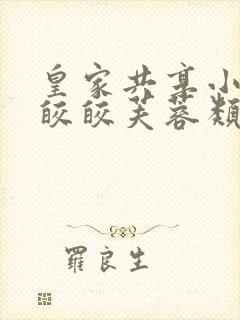 皇家共享小
皎皎芙蓉類
羅良生